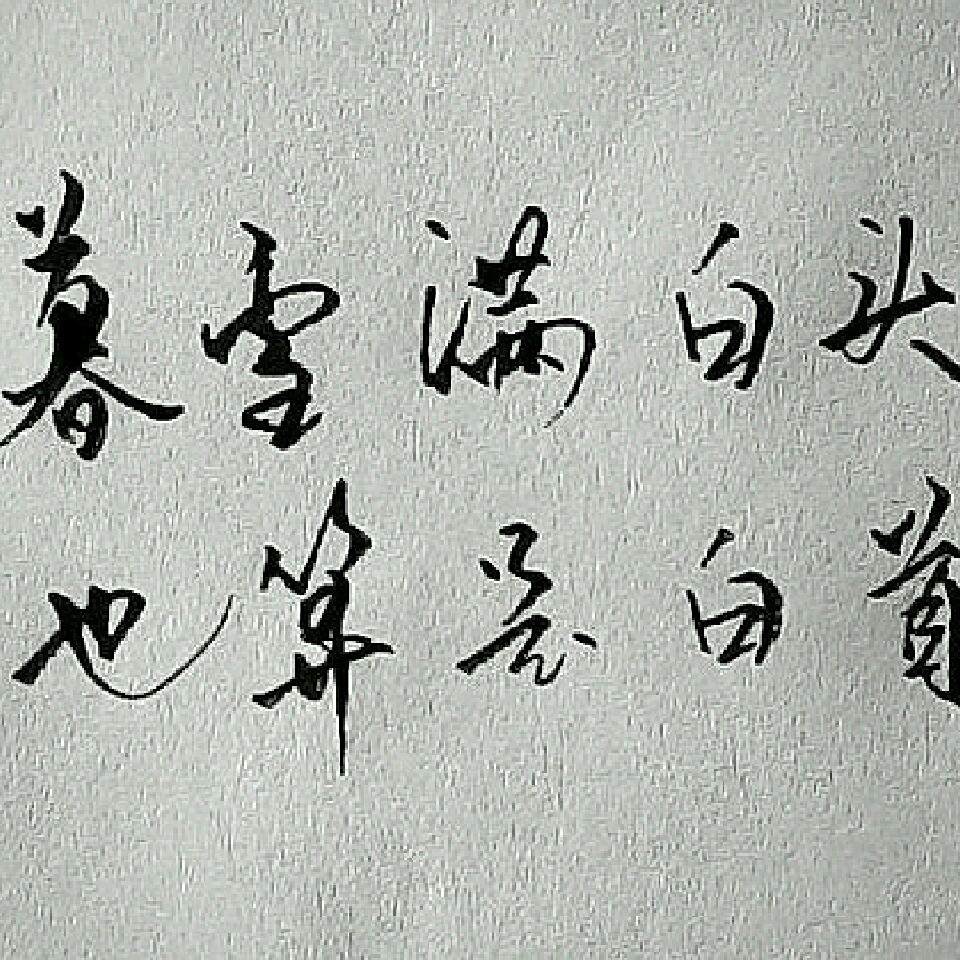 暮雪满白头
也算是白首